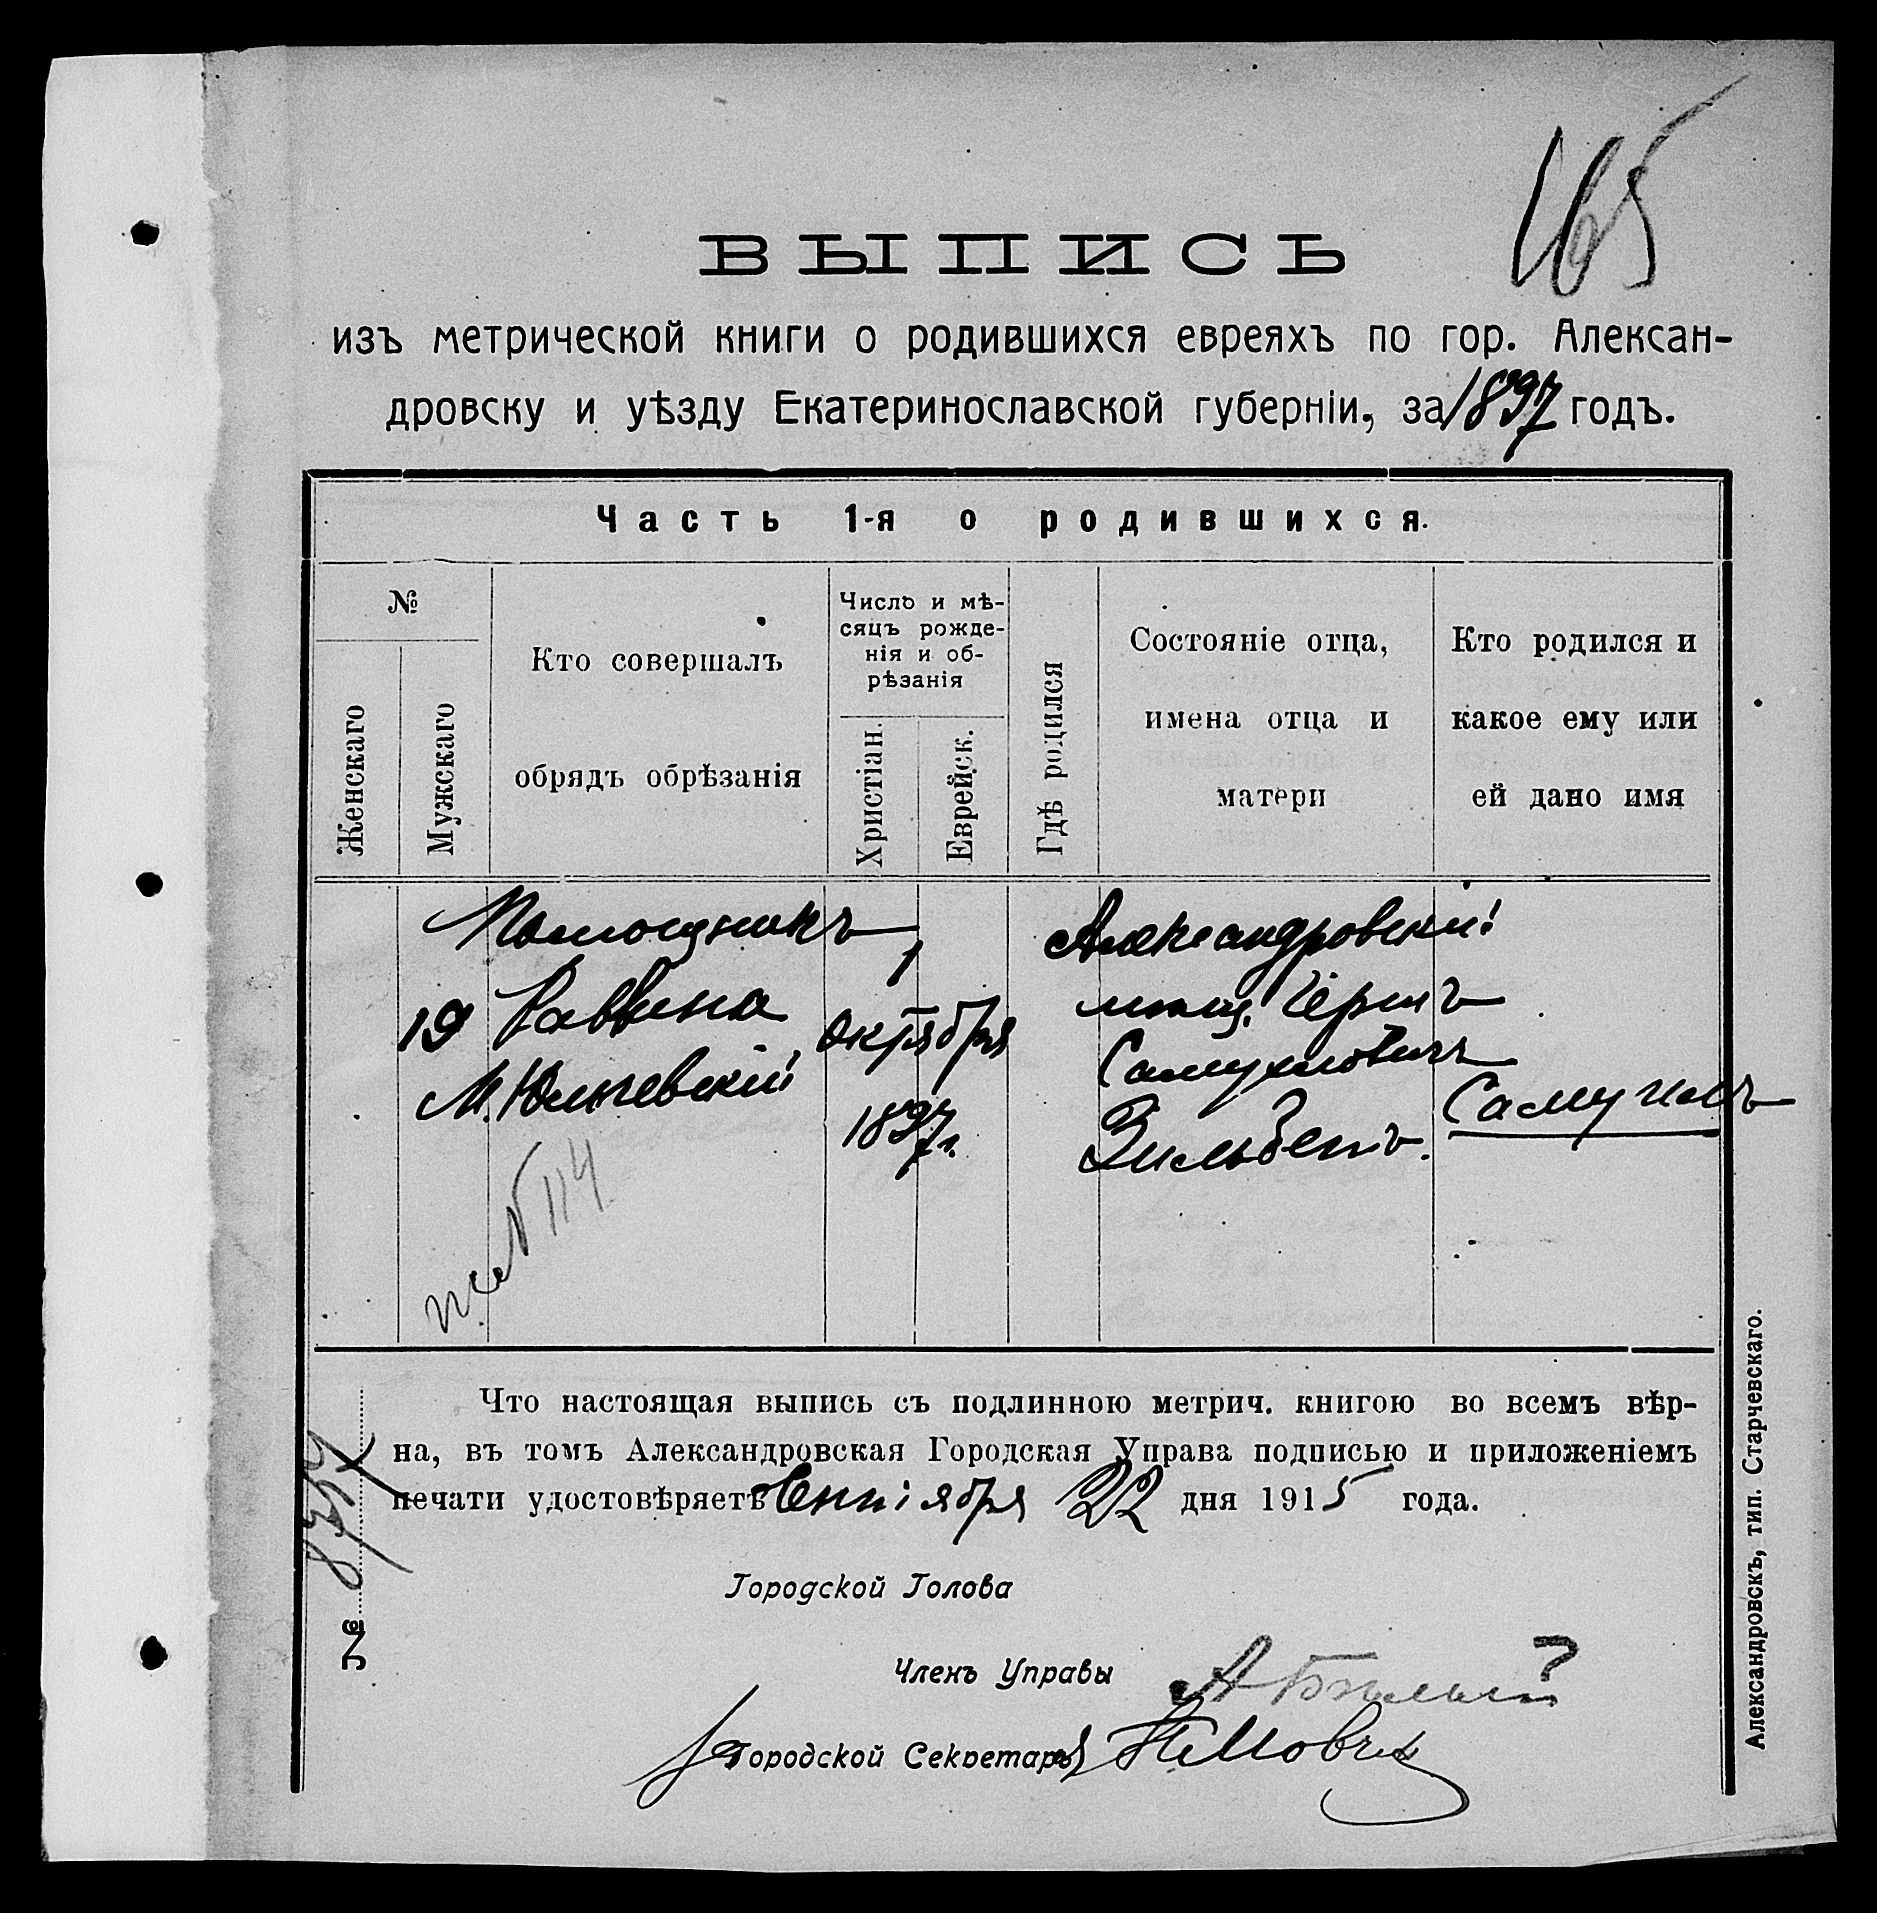 165
ВЫПИСЬ
изъ метрической книги о родившихся евреяхъ по гор. Алексан-
дровску и уѣзду Екатеринославской губерніи, за 1897 годъ.
Часть 1-я о родившихся.
№
Женскаго
Мужскаго
Кто совершалъ
обрядъ обрѣзанія
Число и мѣ-
сяцъ рожде-
нія и об-
рѣзанія
Христіан.
Еврейск.
Гдѣ родился
Состояніе отца,
имена отца и
матери
Кто родился и
какое ему или
ей дано имя
19
Помощникъ
Раввина
М.
1
октября
1897 г.
Александровскій
мѣщ.
Самуиловичъ
Зильбертъ.
Самуилъ
114
Что настоящая выпись съ подлинною метрич. книгою во всемъ вѣр-
на, въ томъ Александровская Городская Управа подписью и приложеніемъ
печати удостовѣряетъ Сентября 22 дня 1915 года.
№
Городской Голова
Членъ Управы
Городской Секретарь
Александровскъ, тип. Старчевскаго.